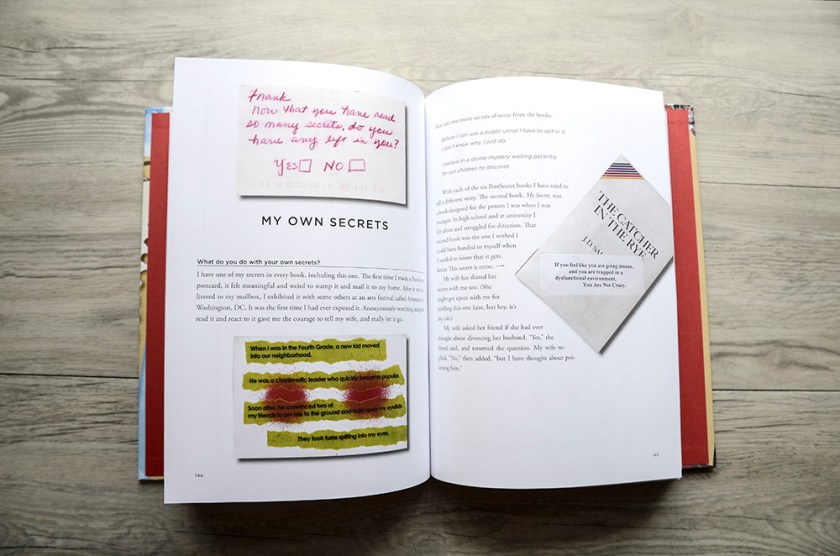 Frank
Now that you have read
so many secrets, do you
have any left in you?
YES NO
MY OWN SECRETS
What do you do with your own secrets?
I have one of my secrets in every book, including this one. The first time I made a
postcard, it felt meaningful and weird to stamp it and mail it to my home. After it was de-
livered to my mailbox, I exhibited it with some others at an arts festival called
Washington, DC. It was the first time I had ever exposed it. Anonymously watching
read it and react to it gave me the courage to tell my wife, and really let it go.
When I was in the Fourth Grade, a new kid moved
into our neighborhood.
He was a charismatic leader who quickly became popular.
Soon after, he convinced two of
my friends to pin me to the ground and hold open my eyelids.
They took turns spitting into my eyes.
144
Here are two more secrets of mine from the books:
Before I can use a public urinal I have to spit in it.
I don't know why, I just do.
I believe in a divine mystery waiting patiently
for our children to discover.
With each of the six PostSecret books I have tried to
tell a different story. The second book, My Secret, was
a book designed for the person I was when I was
younger. In high school and at university I
felt alone and struggled for direction. That
second book was the one I wished I
could have handed to myself when
I needed to know that it gets
better. This secret is mine.
My wife has shared her
secrets with me too. (She
might get upset with me for
sending this one here, but hey, it's
my job.)
My wife asked her friend if she had ever
thought about divorcing her husband. "Yes," the
friend said, and returned the question. My wife re-
plied, "No," then added, "but I have thought about poi-
soning him."
THE CATCHER
IN THE RYE
J.D.
If you feel like you are going insane,
and you are trapped in a
dysfunctional environment,
You Are Not Crazy.